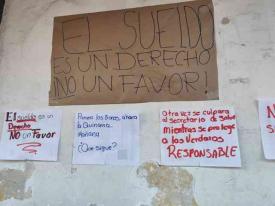 EL SUELDO
ES UN DERECHO
¡NO UN FAVOR!
El sueldo es un
Derecho
NO un Favor
la Quincena
Mañana
¿Que sigue?
Otra vez se culpa
al secretario de Salud
Mientras se protege
a los Verdaros
RESPONSABLE
N